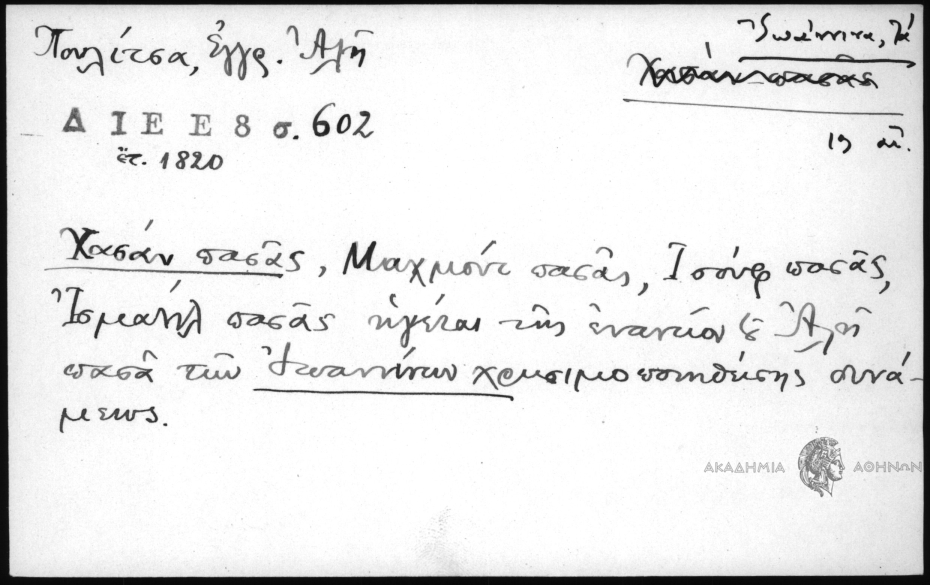 Πουλίτσα, Ἐγγρ. Ἀλῆ
Ἰωάννινα, τὰ
Χασὰν πασᾶς
Δ Ι Ε Ε 8 σ. 602
ἔτ. 1820
19 αἰ.
Χασάν πασᾶς, Μαχμούτ πασᾶς, Ἰσούφ πασᾶς,
Ἰσμαήλ πασᾶς ἡγέται τῆς ἐναντίον τοῦ Ἀλῆ
πασᾶ τῶν Ἰωαννίνων χρησιμοποιηθείσης δυνά-
μεως.
ΑΚΑΔΗΜΙΑ ΑΘΗΝΩΝ